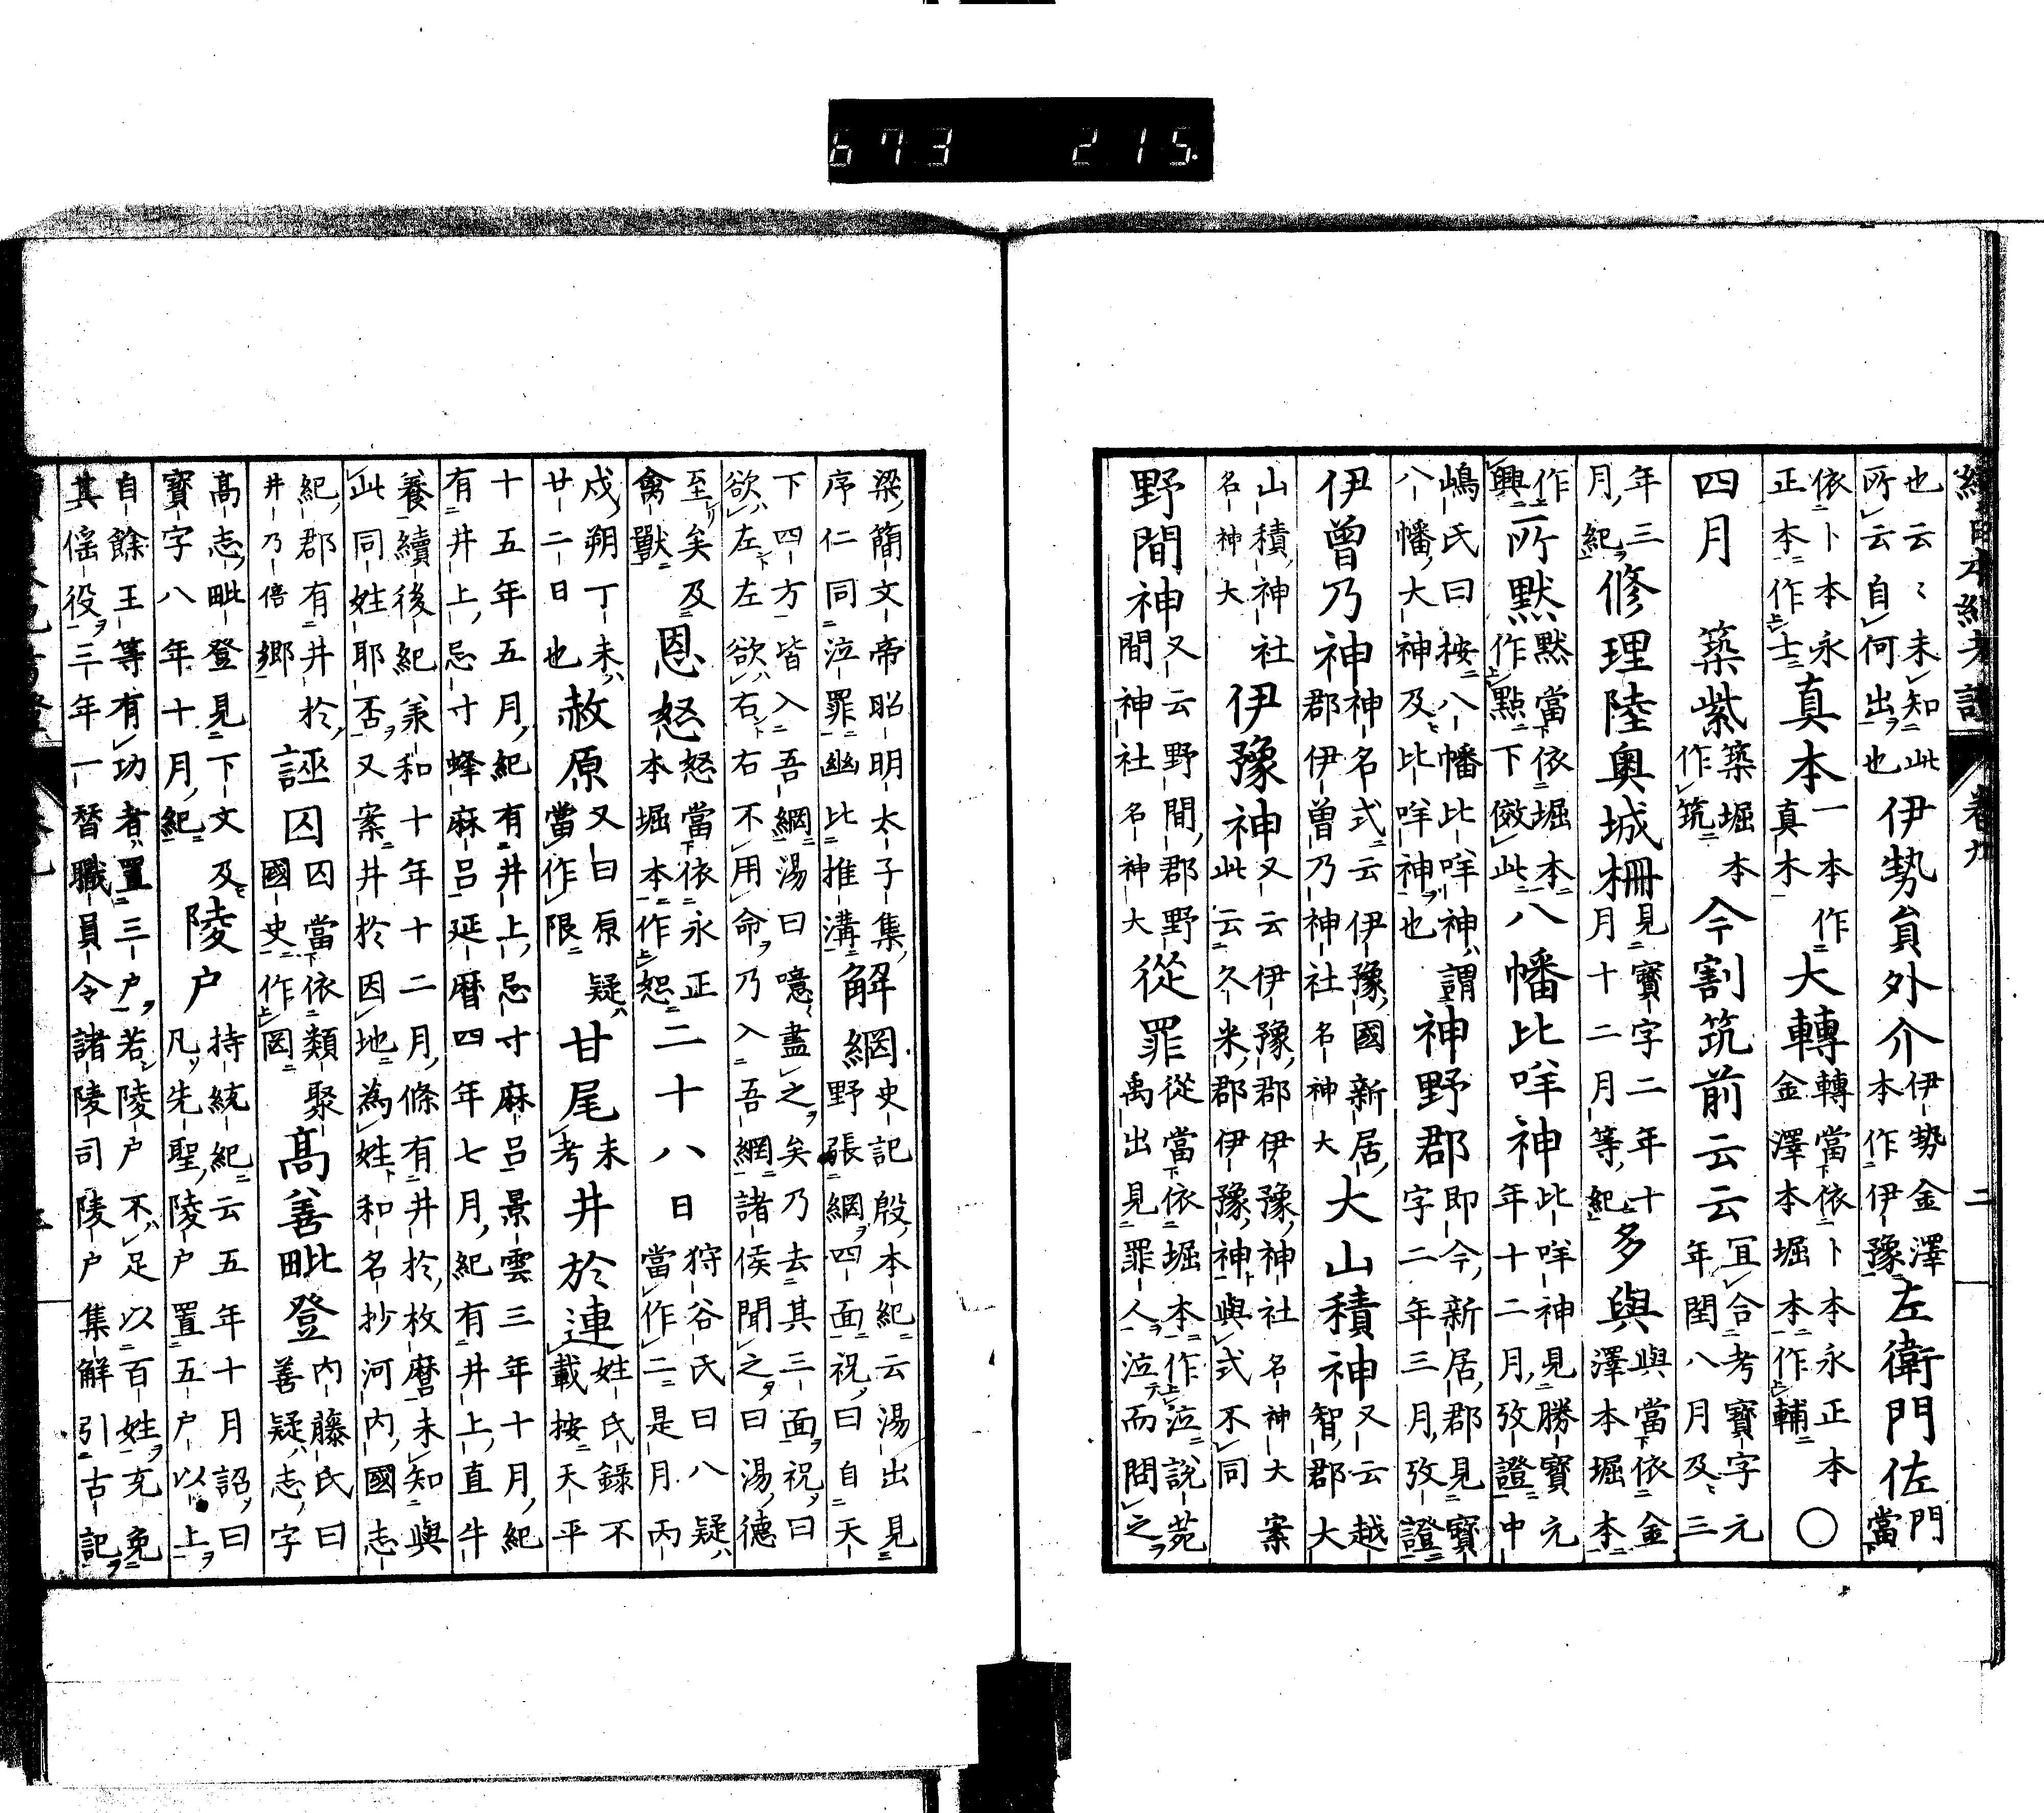 673 215.
續日本紀考證 卷九 二
也云々未知此所云自何出也伊勢員外介伊勢金澤本作伊豫左衛門佐門當
依卜本永正本作士真本一本作真木大轉轉當依卜本永正本金澤本堀本作輔〇
四月 築紫築堀本作筑今割筑前云云冝合考寳字元年閏八月及三
年三月紀修理陸奥城柵見寳字二年十月十二月等紀多與與當依金澤本堀本
作興所默默當依堀本作點下倣此八幡比咩神比咩神見勝寳元年十二月攷證中
嶋氏曰按八幡比咩神謂八幡大神及比咩神也神野郡即今新居郡見寳字二年三月攷證
伊曽乃神神名式云伊豫國新居郡伊曽乃神社名神大大山積神又云越智郡大
山積神社名神大伊豫神又云伊豫郡伊豫神社名神大案此云久米郡伊豫神與式不同
野間神又云野間郡野間神社名神大從罪從當依堀本作泣說苑禹出見罪人泣而問之
梁簡文帝昭明太子集序仁同泣罪幽比推溝解網史記殷本紀云湯出見野張網四面祝曰自天
下四方皆入吾網湯曰噫盡之矣乃去其三面祝曰欲左左欲右右不用命乃入吾網諸侯聞之曰湯德
至矣及禽獸恩怒怒當依永正本堀本作恕二十八日狩谷氏曰八疑當作二是月丙
戍朔丁未廿二日也赦原又曰原疑當作限甘尾未考井於連姓氏錄不載按天平
十五年五月紀有井上忌寸麻呂景雲三年十月紀有井上忌寸蜂麻呂延暦四年七月紀有井上直牛
養續後紀兼和十年十二月條有井於枚麿未知與此同姓耶否又案井於因地為姓和名抄河內國志
紀郡有井於井乃倍鄉誣囚囚當依類聚國史作罔高善毗登内藤氏曰善疑志字
高志毗登見下文及寳字八年十月紀陵户持統紀云五年十月詔曰凡先聖陵户置五户以上
自餘王等有功者置三户若陵户不足以百姓充免其傜役三年一替職員令諸陵司陵户集解引古記